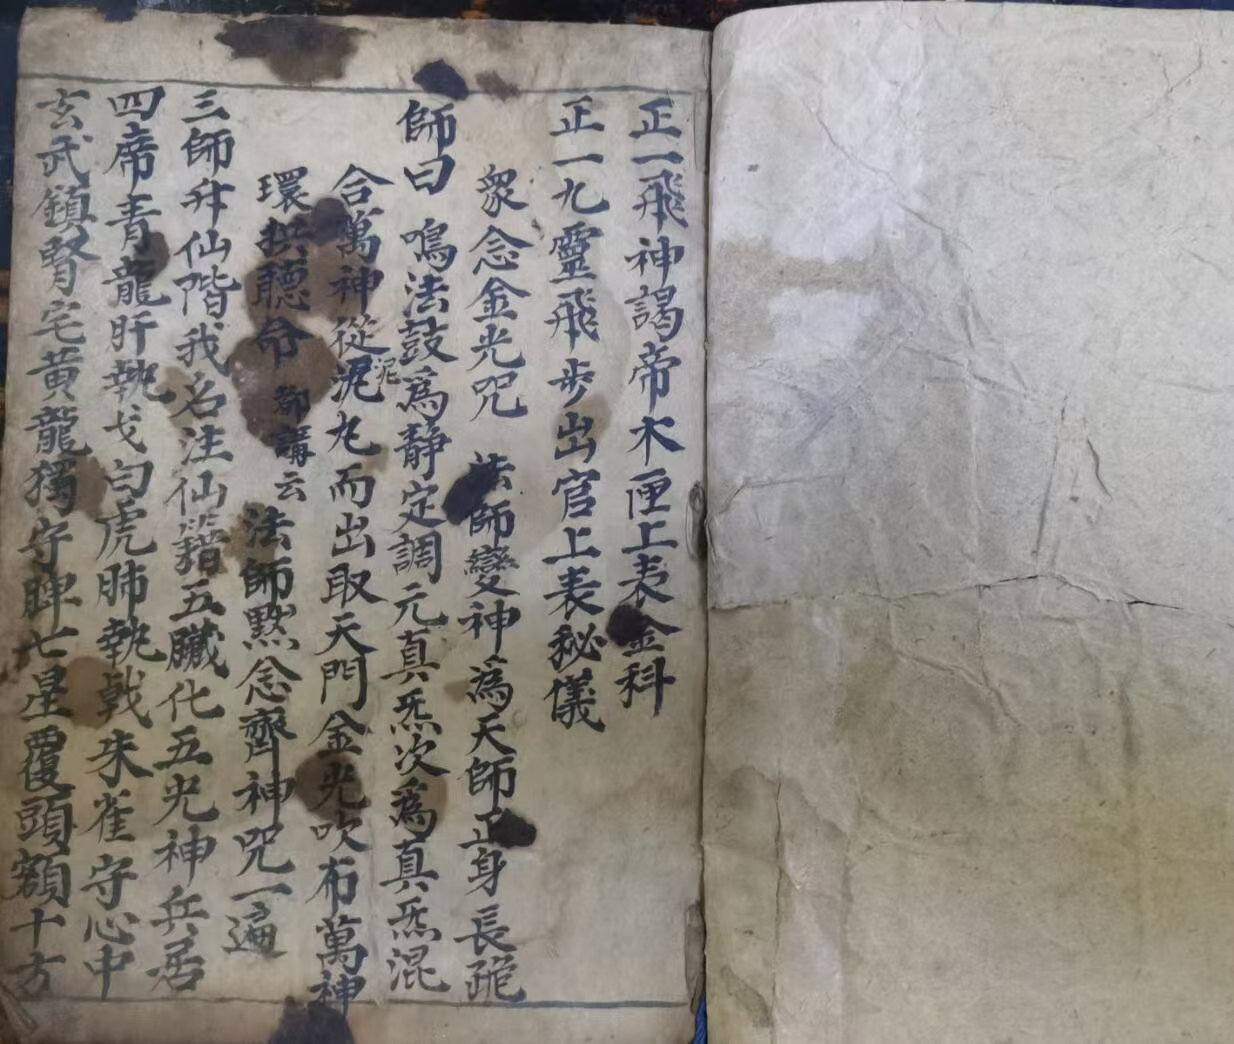 正一飛神謁帝木匣上表金科
正一九靈飛步出官上表秘儀
衆念金光咒 法師變神為天師正身長跪
師曰 鳴法鼓為靜定調元真炁次為真炁混
合萬神從泥泥丸而出取天門金光吹布萬神
環拱聽命 都講云 法師黙念齊神咒一遍
三師升仙階我名注仙籍五臟化五光神兵居
四席青龍肝執戈白虎肺執戟朱雀守心中
玄武鎮腎宅黄龍獨守脾七星覆頭額十方